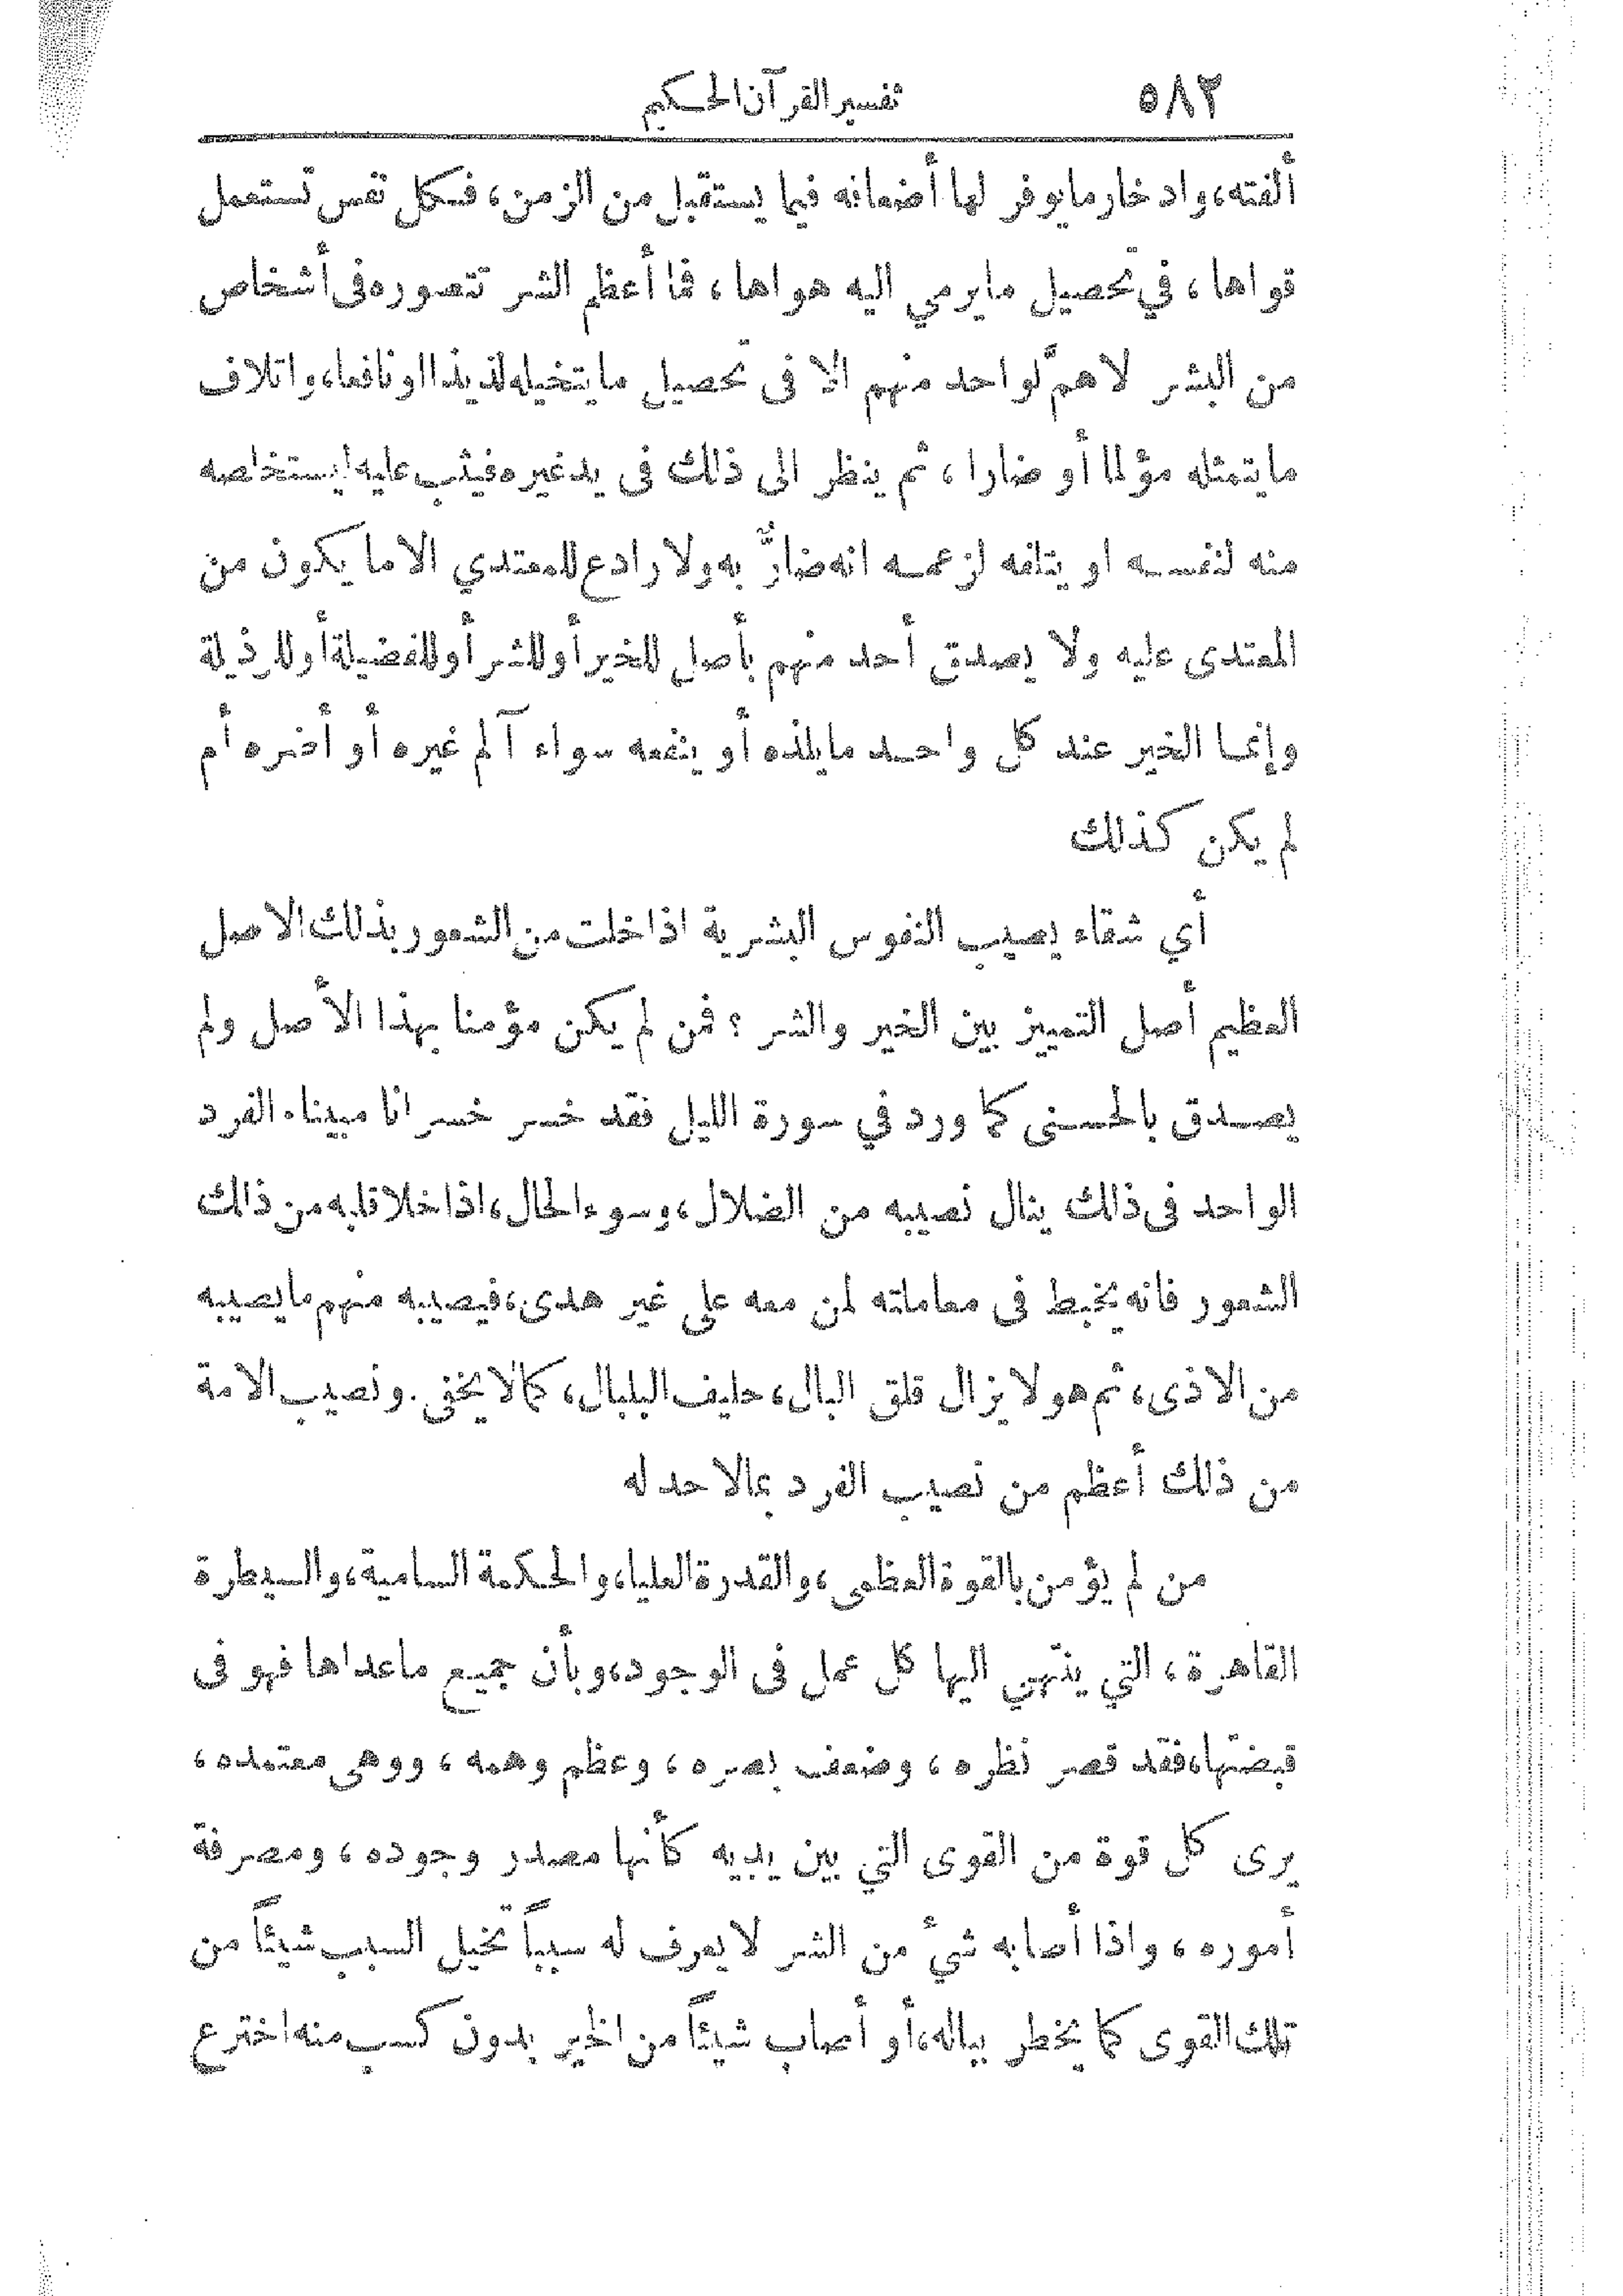 ٥٨٢ تفسير القرآن الحكيم
ألفته، وادخار ما يوفر لها أضعافه فيما يستقبل من الزمن، فكل نفس تستعمل
قواها، في تحصيل ما يرمي اليه هواها، فما أعظم الشر تتصوره في أشخاص
من البشر لا همَّ لواحد منهم الا في تحصيل ما يتخيله لذيذا او نافعا، واتلاف
ما يتمثله مؤلما أو ضارا، ثم ينظر الى ذلك في يد غيره فيثب عليه ليستخلصه
منه لنفسه او يتلفه لزعمه انه ضارٌّ به ولا رادع للمعتدي الا ما يكون من
المعتدى عليه ولا يصدق أحد منهم بأصل للخير أو للشر أو للفضيلة أو للرذيلة
وإنما الخير عند كل واحد ما يلذه أو ينفعه سواء آلم غيره أو أضره أم
لم يكن كذلك
أي شقاء يصيب النفوس البشرية اذا خلت من الشعور بذلك الاصل
العظيم أصل التمييز بين الخير والشر؟ فمن لم يكن مؤمنا بهذا الأصل ولم
يصدق بالحسنى كما ورد في سورة الليل فقد خسر خسرانا مبينا. الفرد
الواحد في ذلك ينال نصيبه من الضلال، وسوء الحال، اذا خلا قلبه من ذلك
الشعور فانه يخبط في معاملته لمن معه على غير هدى، فيصيبه منهم ما يصيبه
من الاذى، ثم هو لا يزال قلق البال، حليف البلبال، كما لا يخفى. ونصيب الامة
من ذلك أعظم من نصيب الفرد بما لا حد له
من لم يؤمن بالقوة العظمى، والقدرة العليا، والحكمة السامية، والسيطرة
القاهرة، التي ينتهي اليها كل عمل في الوجود، وبأن جميع ما عداها فهو في
قبضتها، فقد قصر نظره، وضعف بصره، وعظم وهمه، ووهى معتمده،
يرى كل قوة من القوى التي بين يديه كأنها مصدر وجوده، ومصرفة
أموره، واذا أصابه شئ من الشر لا يعرف له سبباً تخيل السبب شيئاً من
تلك القوى كما يخطر بباله، أو أصاب شيئاً من الخير بدون كسب منه اخترع